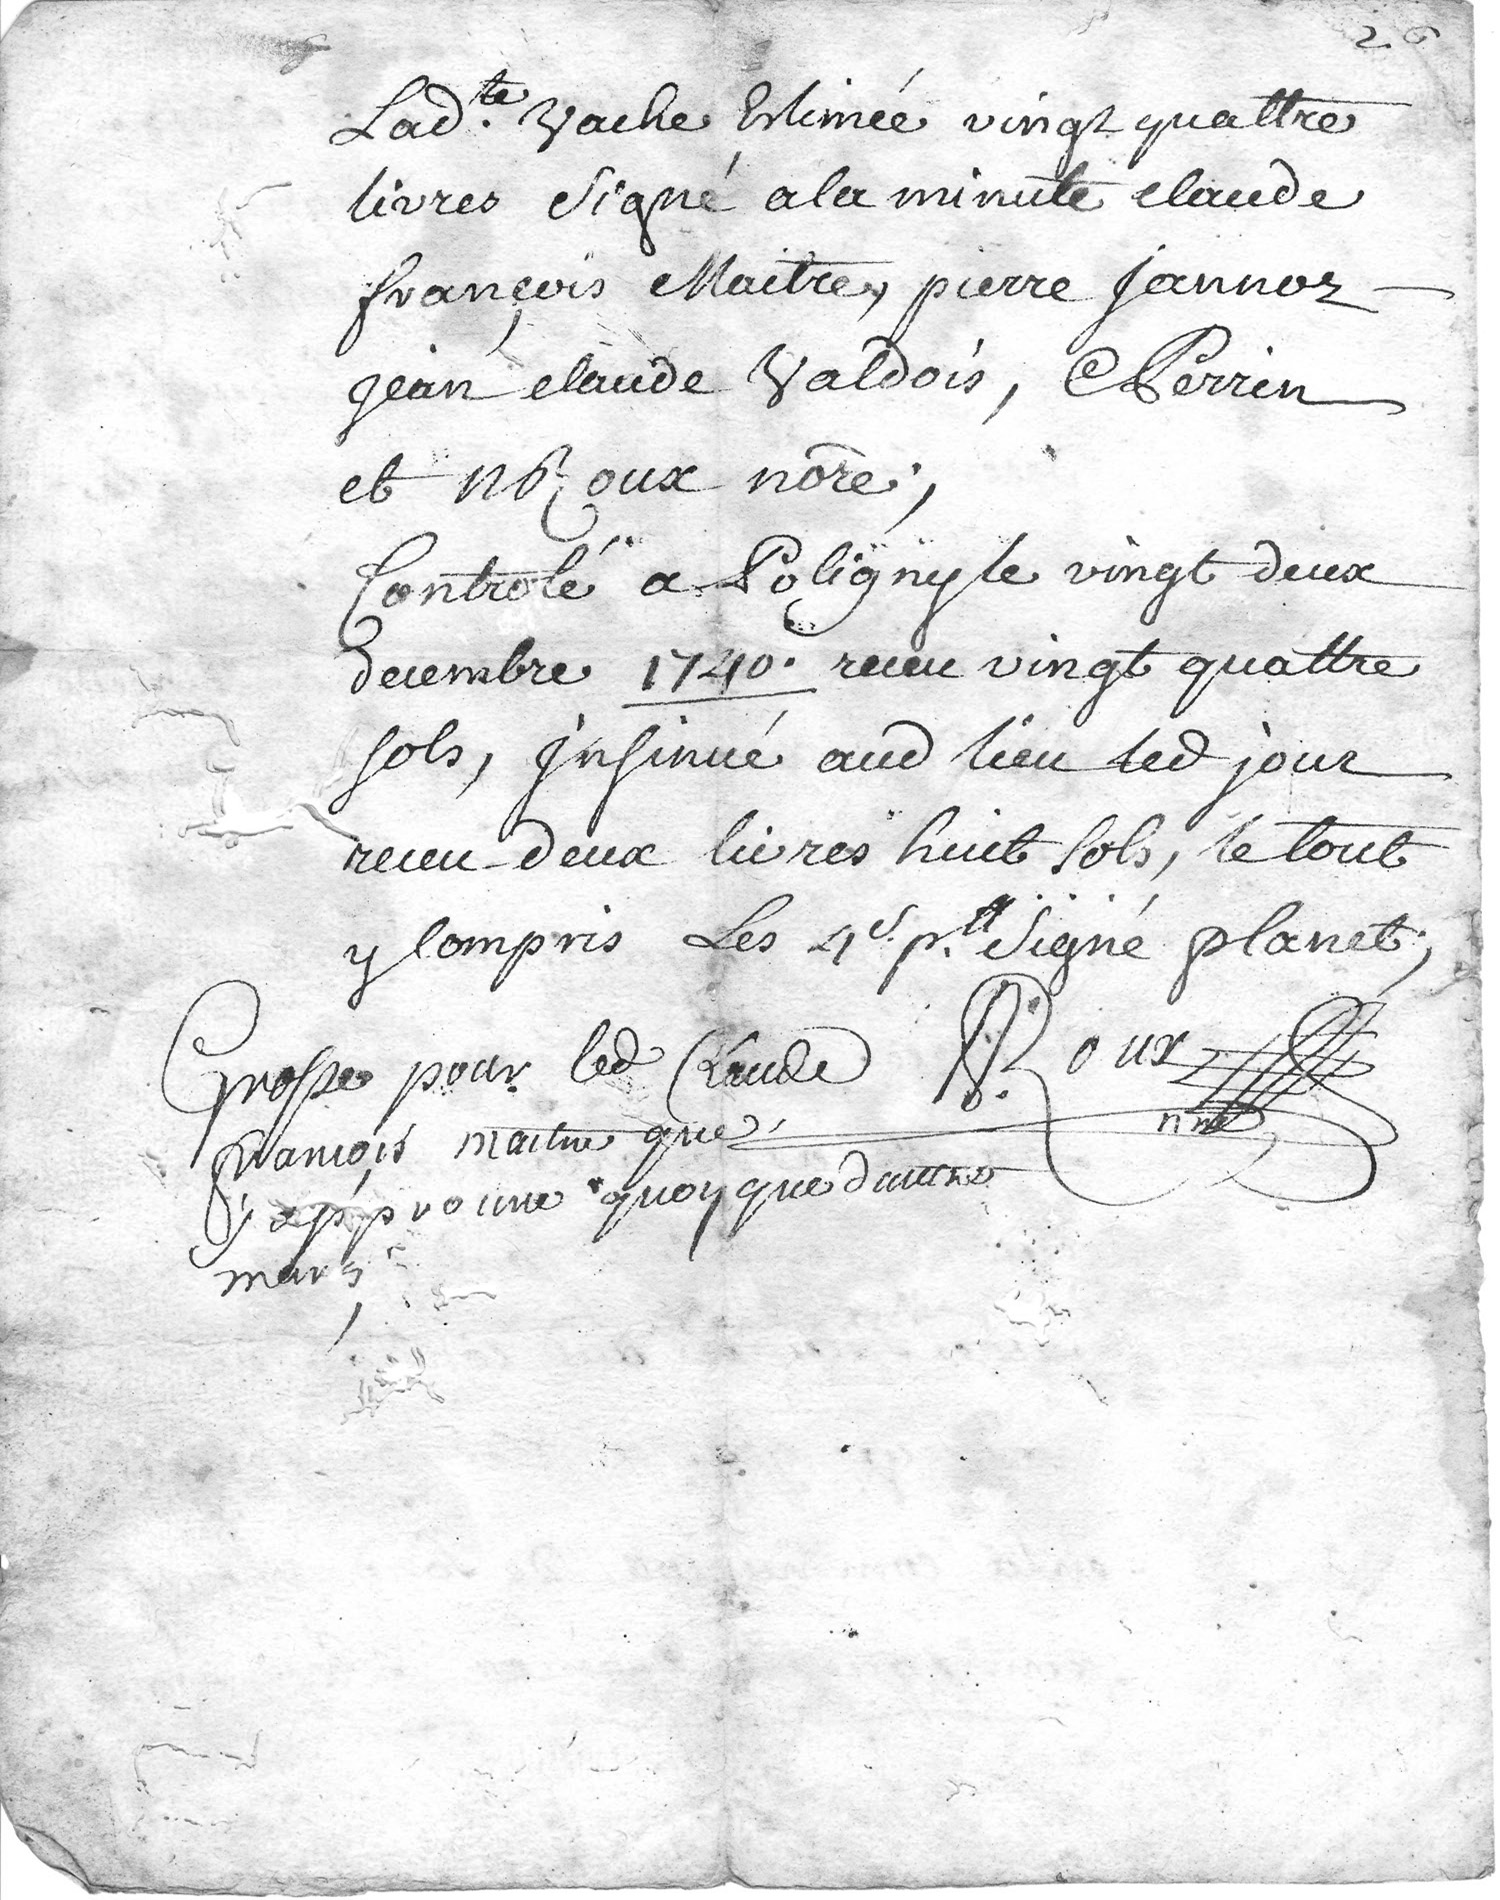 26
Lad.te Vache Estimée vingt quattre
livres signé a la minute claude
françois Maitre, pierre jannoz
jean claude Valdois, C Perrin
et N Roux nore,
Controlé a Poligny le vingt deux
decembre 1740. receu vingt quattre
sols, jnsinué aud lieu led jour
receu deux livres huit sols, le tout
y compris Les 4 s. p.r tt signé planet,
Grosse pour led Claude Roux
françois maitre que nre
j'approuve quoyque dautre
main,